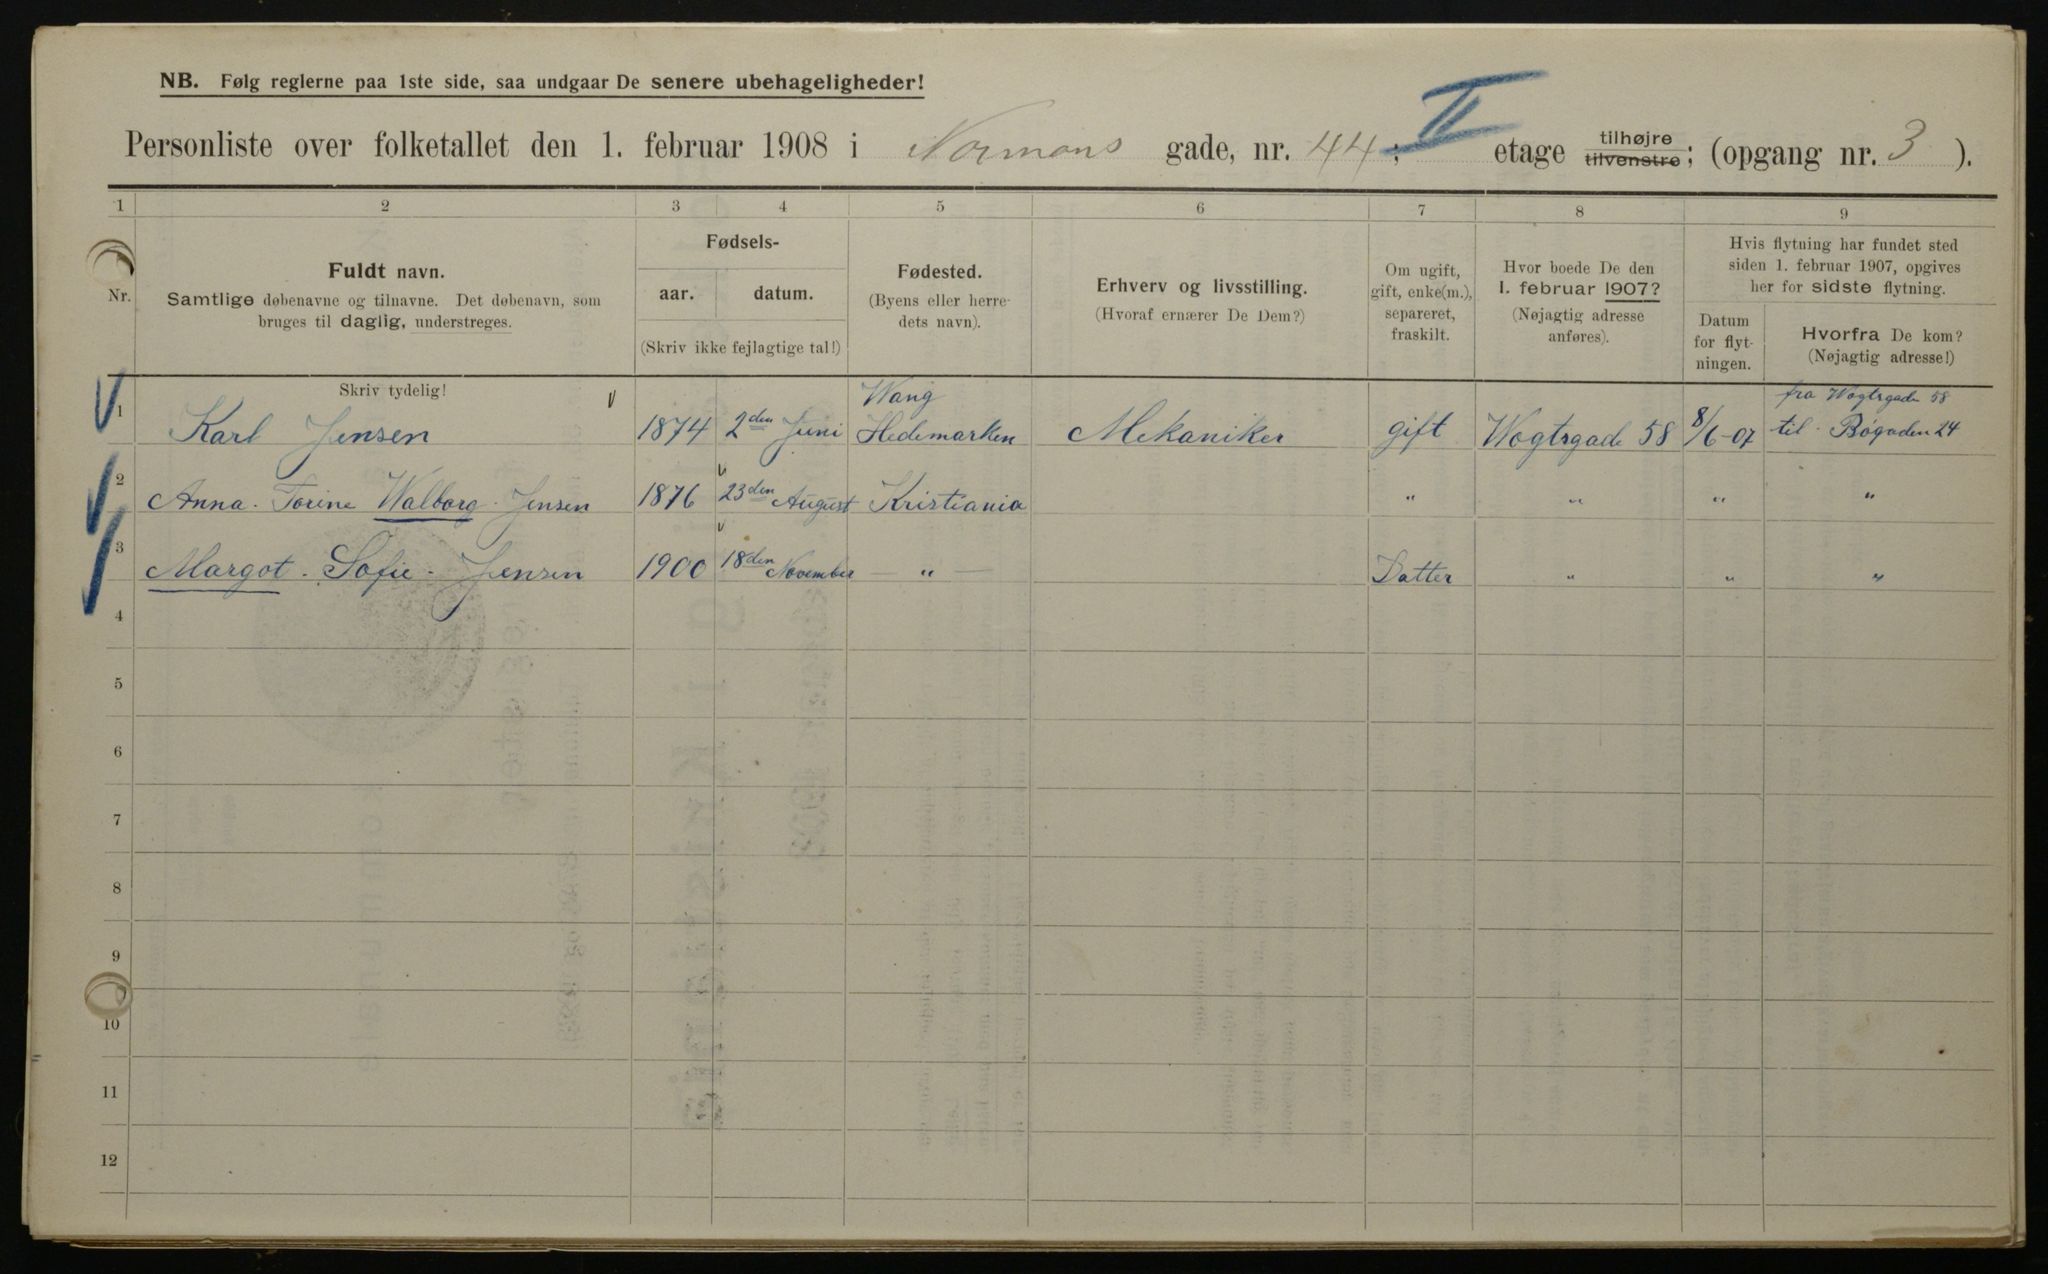 NB. Følg reglerne paa 1ste side, saa undgaar De senere ubehageligheder!
Personliste over folketallet den 1. februar 1908 i Normans gade, nr. 44; II etage tilhøjre tilvenstre; (opgang nr. 3 ).
1 2 3 4 5 6 7 8 9
Nr.
Fuldt navn.
Samtlige døbenavne og tilnavne. Det døbenavn, som
bruges til daglig, understreges.
Fødsels-
aar. datum.
(Skriv ikke fejlagtige tal!)
Fødested.
(Byens eller herre-
dets navn).
Erhverv og livsstilling.
(Hvoraf ernærer De Dem?)
Om ugift,
gift, enke(m.),
separeret,
fraskilt.
Hvor boede De den
1. februar 1907?
(Nøjagtig adresse
anføres).
Hvis flytning har fundet sted
siden 1. februar 1907, opgives
her for sidste flytning.
Datum
for flyt-
ningen.
Hvorfra De kom?
(Nøjagtig adresse!)
Skriv tydelig!
Wang fra Wogtsgade 58
1 Karl Jensen 1874 2den Juni Hedemarken Mekaniker gift Wogtsgade 58 8/6-07 til Bøgaden 24
2 Anna. Torine Walborg. Jensen 1876 23den August Kristiania " " " "
3 Margot. Sofie. Jensen 1900 18den November — " — Datter " " "
4
5
6
7
8
9
10
11
12